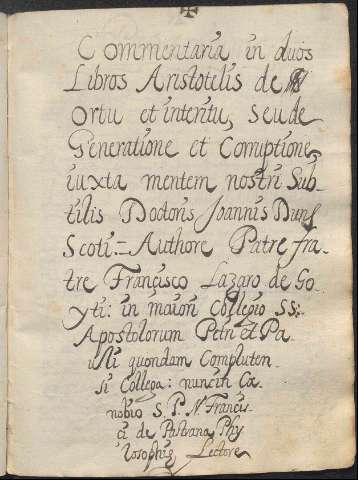 Commentaria in duos
Libros Aristotelis de
Ortu et interitu, seu de
Generatione et Corruptione,
iuxta mentem nostri Sub-
tilis Doctoris Joannis Duns
Scoti:= Authore Patre fra-
tre Francisco Lazaro de Go-
yti: in maiori Collegio SS:
Apostolorum Petri et Pa-
uli quondam Compluten-
si Collega: nunc in Cæ-
nobio S. P. N. Francis-
ci de Pastrana Phy
losophiæ Lectore